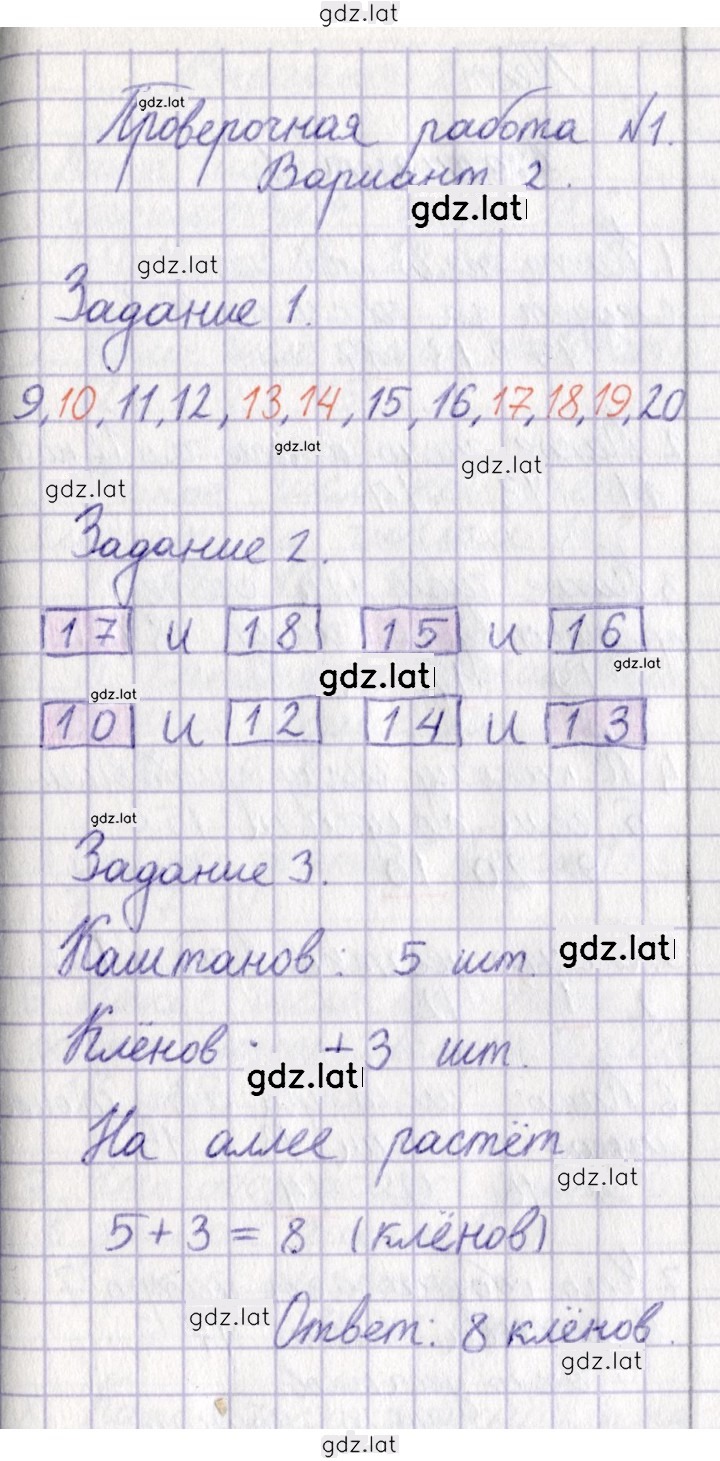 gdz.lat
gdz.lat
Проверочная работа №1.
Вариант 2.
gdz.lat
gdz.lat
Задание 1.
9, 10, 11, 12, 13, 14, 15, 16, 17, 18, 19, 20
gdz.lat
gdz.lat
gdz.lat
Задание 2.
17 и 18 15 и 16
gdz.lat
gdz.lat
gdz.lat
10 и 12 14 и 13
gdz.lat
Задание 3.
Каштанов: 5 шт.
gdz.lat
Клёнов: +3 шт.
gdz.lat
На аллее растёт
gdz.lat
5 + 3 = 8 (клёнов)
gdz.lat
Ответ: 8 клёнов.
gdz.lat
gdz.lat